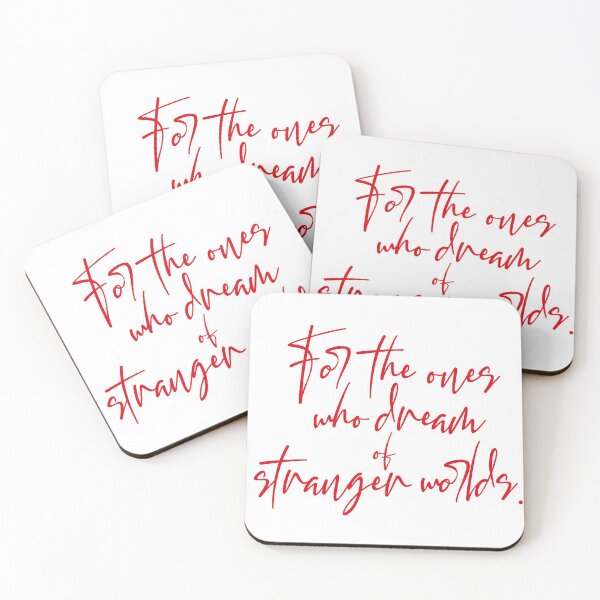 For the ones
who dream
For the ones
who dream
of
For the ones
who dream
of
stranger
For the ones
who dream
of
stranger worlds.